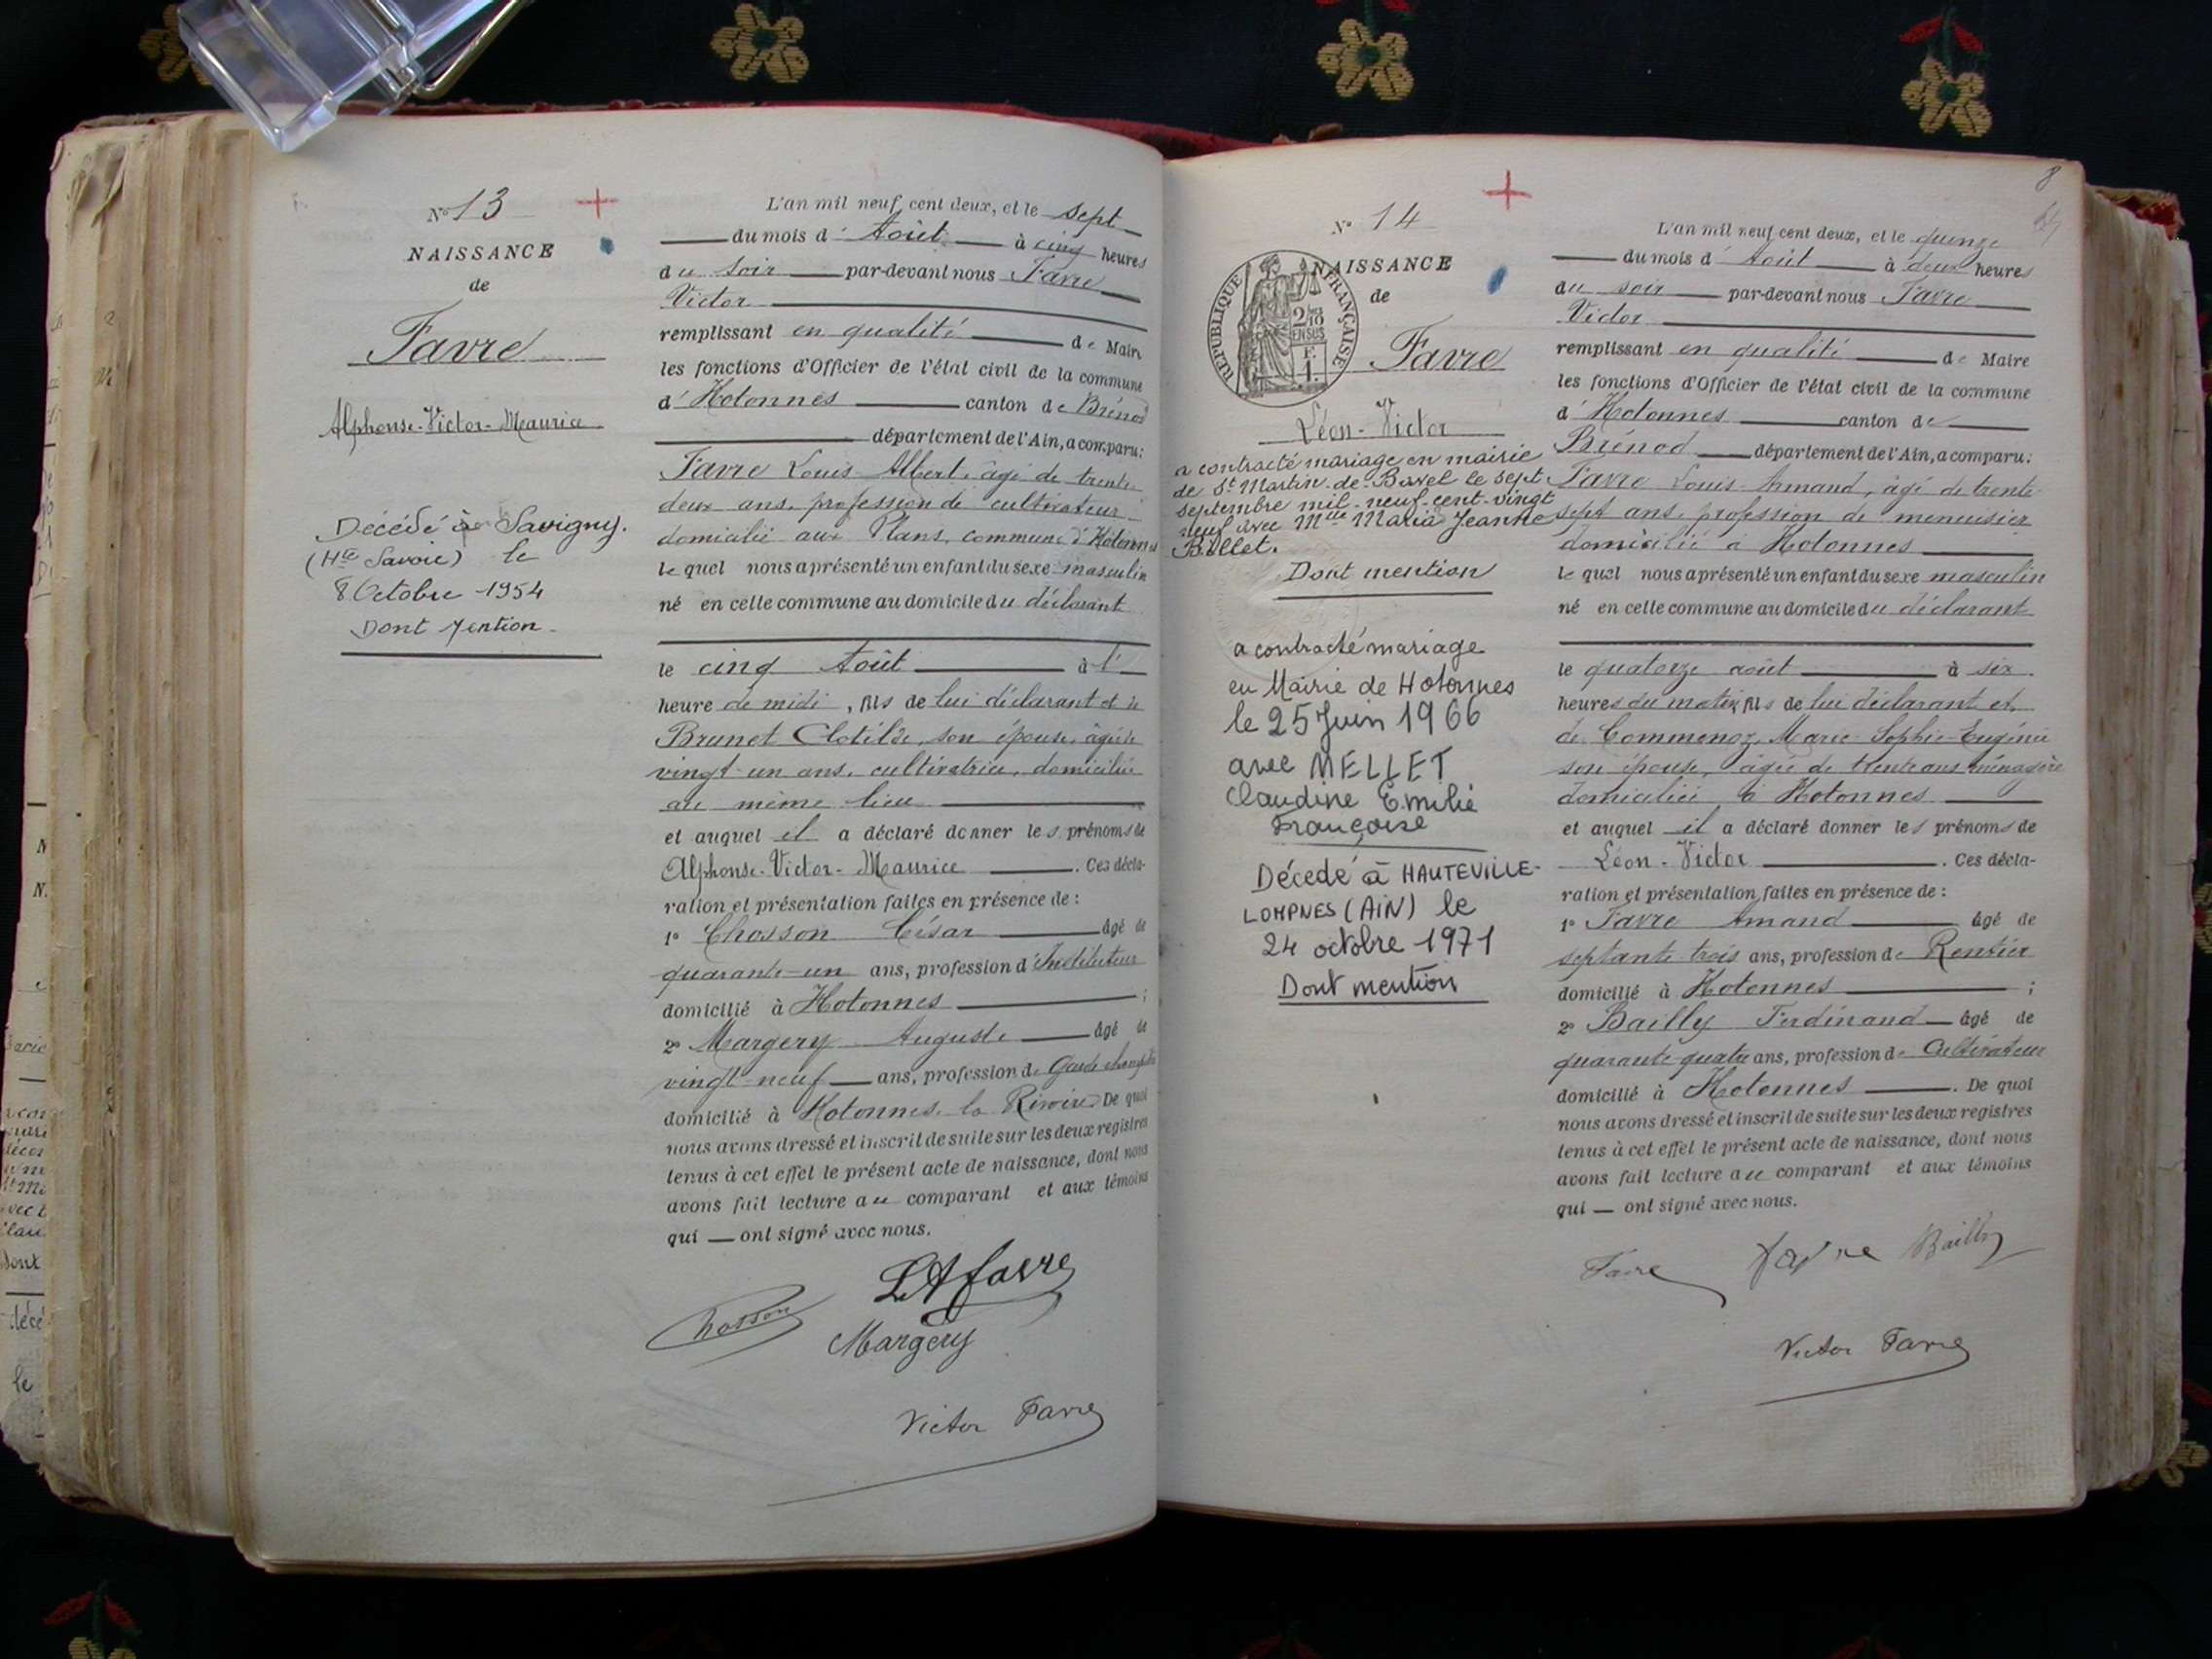 Nº 13
NAISSANCE
de
Favre
Alphonse-Victor-Maurice
Décédé à Savigny.
(Hte Savoie) le
8 Octobre 1954
Dont Mention
L'an mil neuf cent deux, et le sept
du mois d' Août à cinq heures
du soir par-devant nous Favre
Victor
remplissant en qualité de Maire
les fonctions d'Officier de l'état civil de la commune
d' Hotonnes canton de Brénod
département de l'Ain, a comparu:
Favre Louis Albert, âgé de trente
deux ans, profession de cultivateur
domicilié aux Plans, commune d'Hotonnes
lequel nous a présenté un enfant du sexe masculin
né en cette commune au domicile du déclarant
le cinq Août à l'
heure de midi, fils de lui déclarant et de
Brunet Clotilde, son épouse, âgée de
vingt-un ans, cultivatrice, domiciliée
au même lieu
et auquel il a déclaré donner les prénoms de
Alphonse-Victor-Maurice. Ces décla-
ration et présentation faites en présence de:
1º Chosson César âgé de
quarante-un ans, profession d'Instituteur
domicilié à Hotonnes;
2º Margery Auguste âgé de
vingt-neuf ans, profession de Garde champêtre
domicilié à Hotonnes, la Rivoire De quoi
nous avons dressé et inscrit de suite sur les deux registres
tenus à cet effet le présent acte de naissance, dont nous
avons fait lecture au comparant et aux témoins
qui ont signé avec nous.
LA favre
Chosson
Margery
Victor Favre
8
Nº 14
NAISSANCE
de
RÉPUBLIQUE FRANÇAISE
2/10 EN SUS
F.
1.
Favre
Léon-Victor
a contracté mariage en mairie
de St Martin-de-Bavel le sept
septembre mil-neuf-cent-vingt
neuf avec Mlle Maria Jeanne
Ballet.
Dont mention
a contracté mariage
en Mairie de Hotonnes
le 25 Juin 1966
avec MELLET
Claudine Emilie
Françoise
Décédé à HAUTEVILLE-
LOMPNES (AIN) le
24 octobre 1971
Dont mention
L'an mil neuf cent deux, et le quinze
du mois d' Août à deux heures
du soir par-devant nous Favre
Victor
remplissant en qualité de Maire
les fonctions d'Officier de l'état civil de la commune
d' Hotonnes canton de
Brénod département de l'Ain, a comparu:
Favre Louis Armand, âgé de trente
sept ans, profession de menuisier
domicilié à Hotonnes
lequel nous a présenté un enfant du sexe masculin
né en cette commune au domicile du déclarant
le quatorze août à six
heures du matin, fils de lui déclarant et
de Commenoz, Marie Sophie-Eugénie
son épouse, âgée de trente ans ménagère
domiciliée à Hotonnes
et auquel il a déclaré donner les prénoms de
Léon-Victor. Ces décla-
ration et présentation faites en présence de:
1º Favre Amand âgé de
septante trois ans, profession de Rentier
domicilié à Hotonnes;
2º Bailly Ferdinand âgé de
quarante-quatre ans, profession de Cultivateur
domicilié à Hotonnes. De quoi
nous avons dressé et inscrit de suite sur les deux registres
tenus à cet effet le présent acte de naissance, dont nous
avons fait lecture au comparant et aux témoins
qui ont signé avec nous.
Favre Favre Bailly
Victor Favre